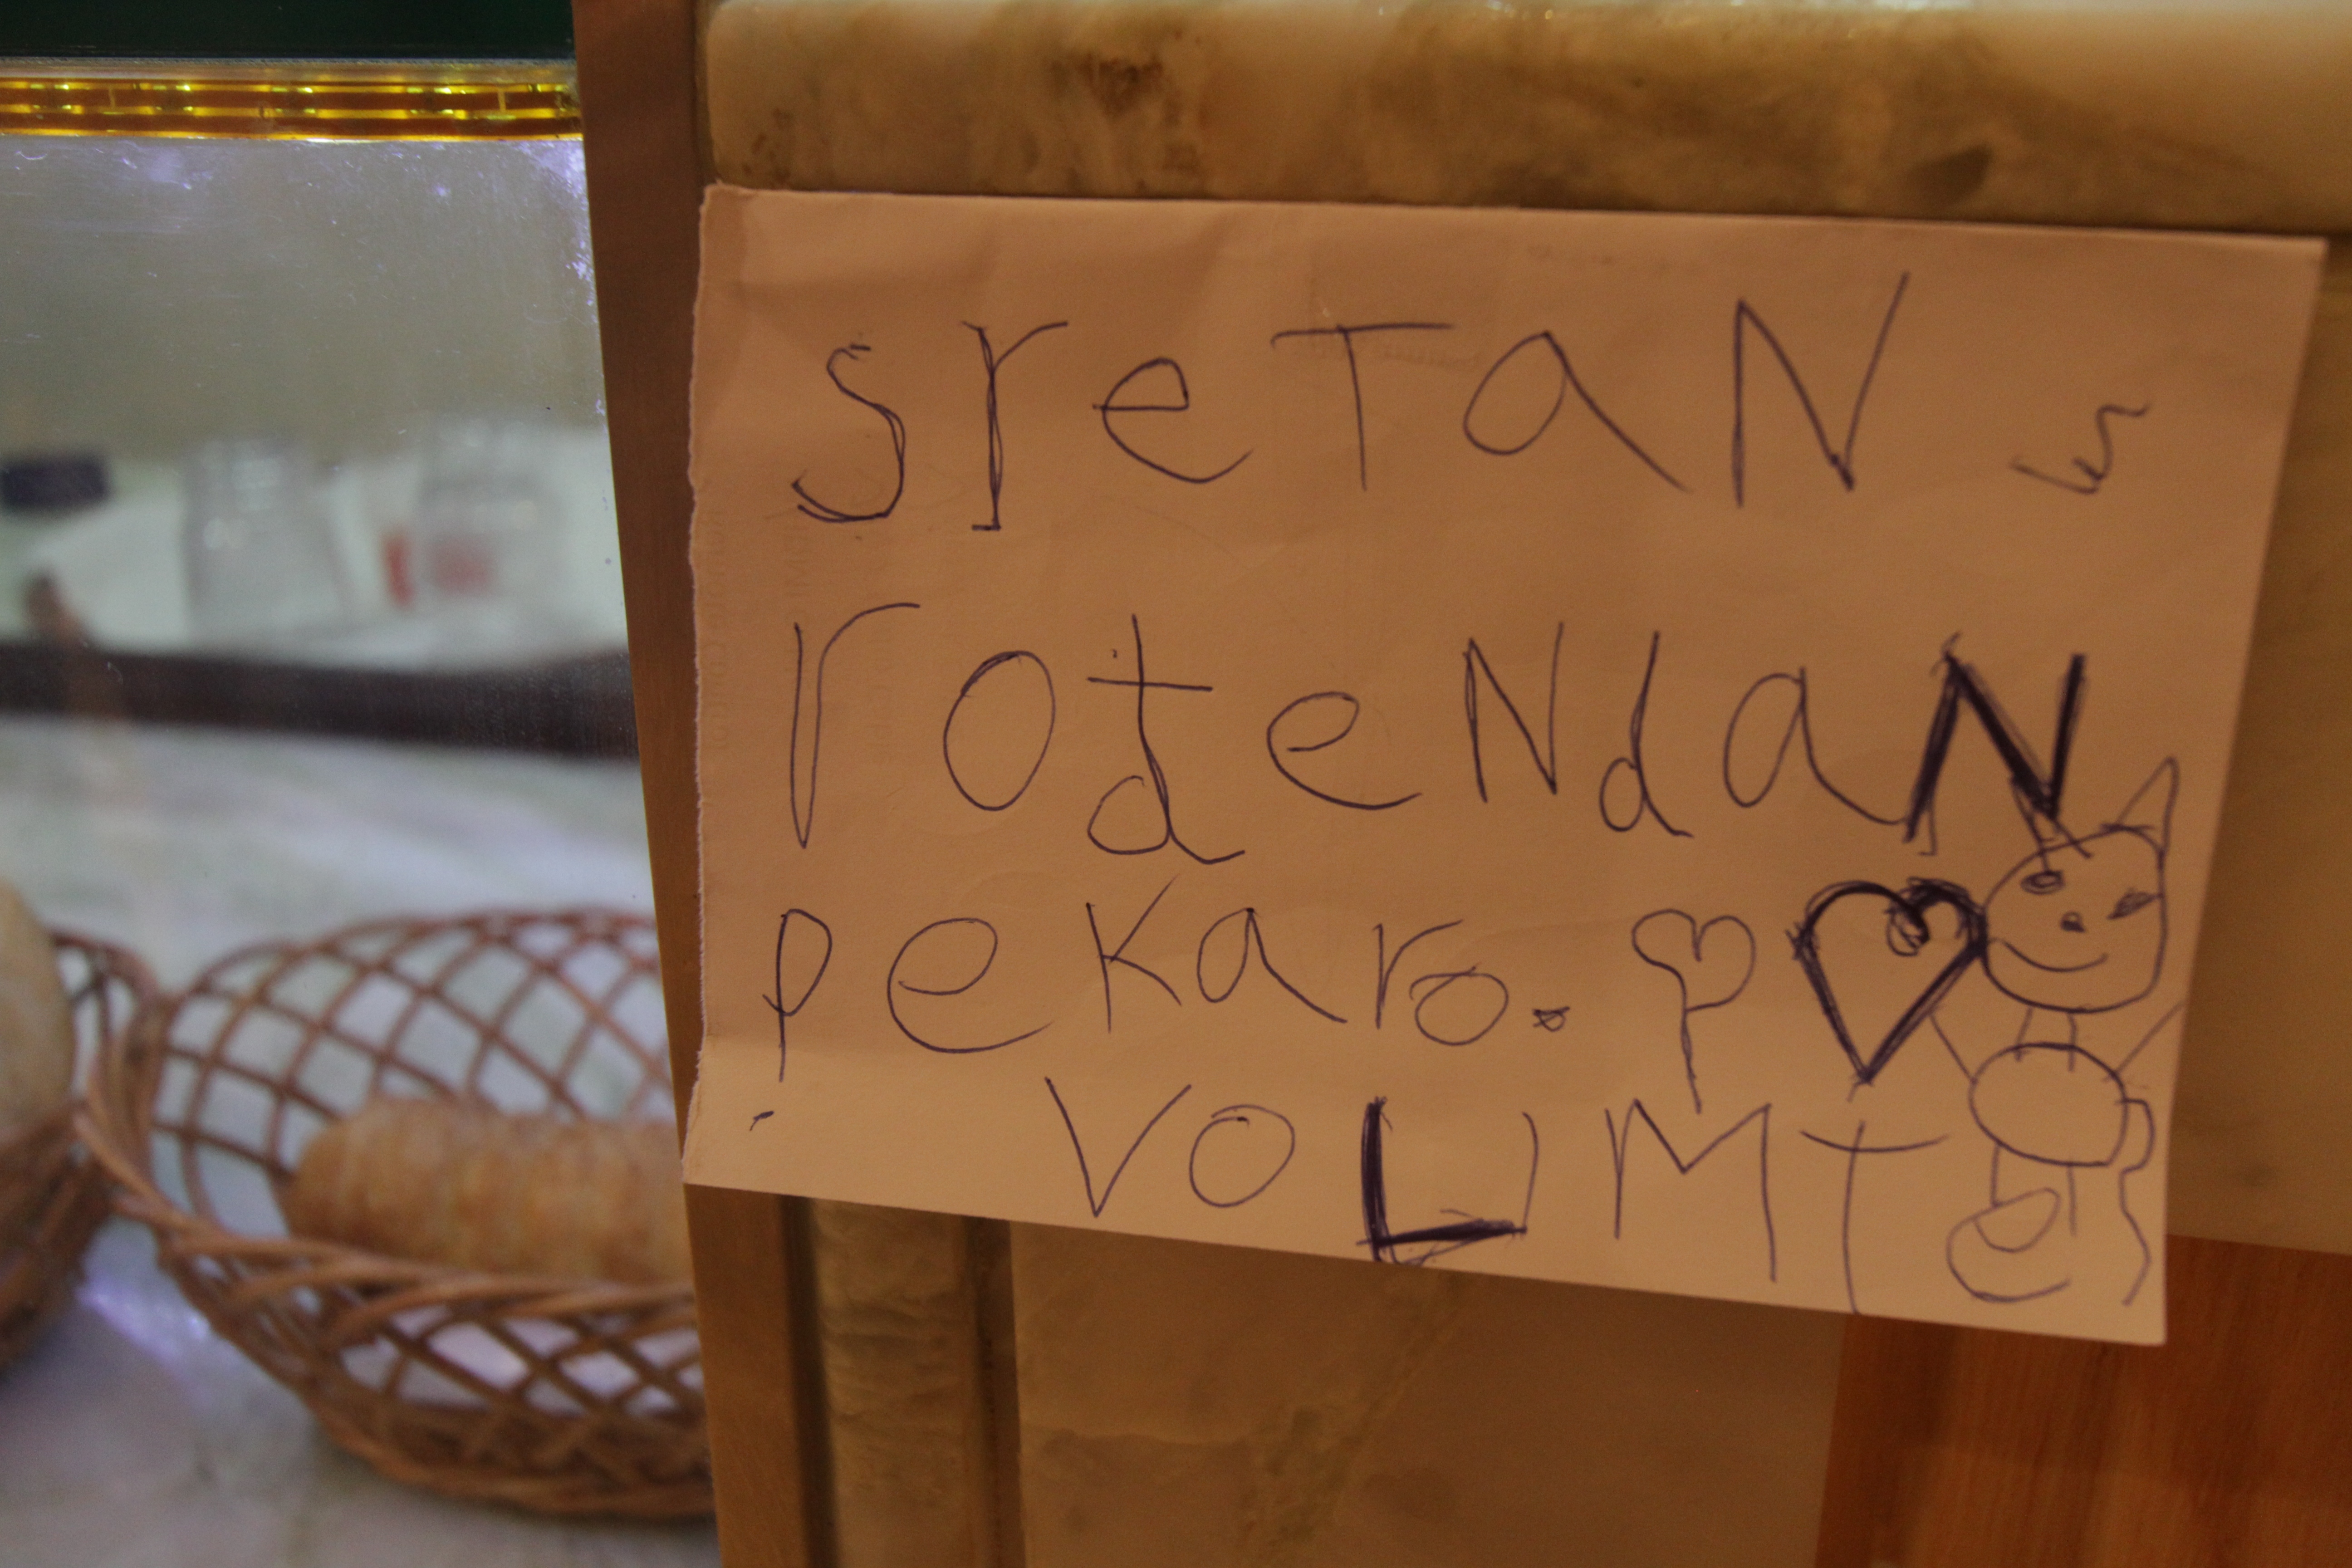 sreTaN
rođeNdaN
pekaro.
VOLIMTe